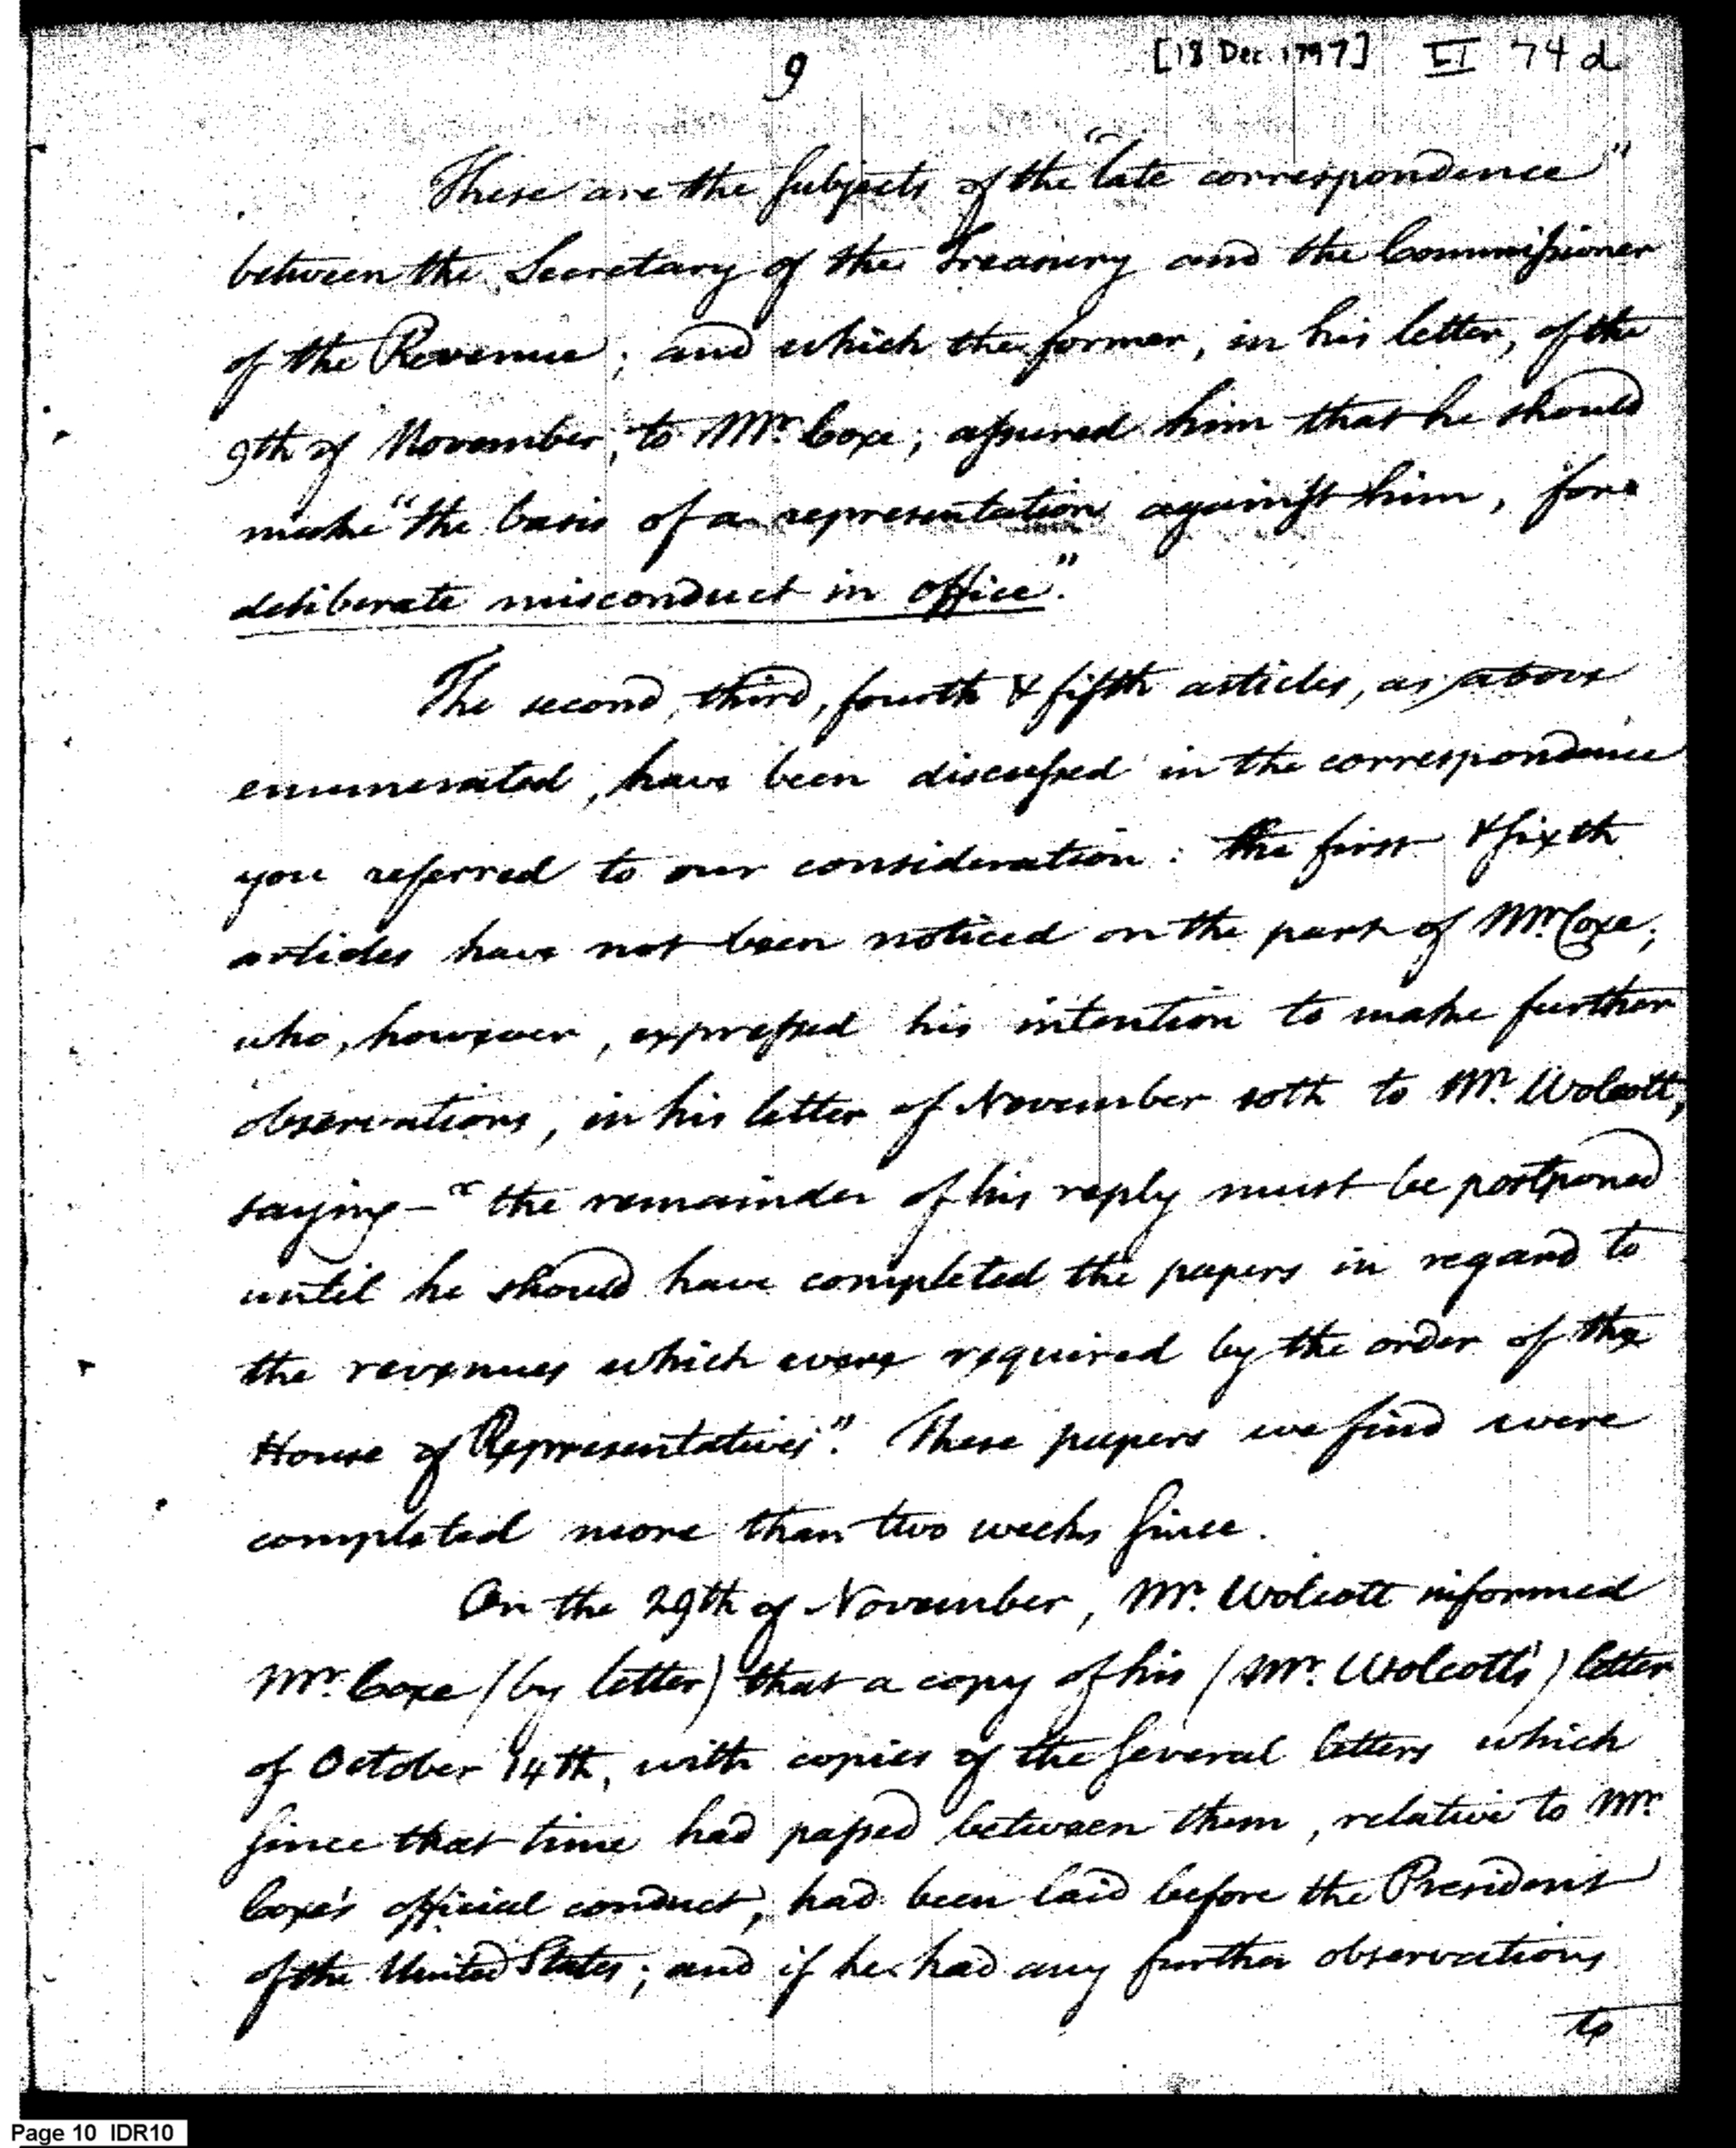 9
[18 Dec. 1797] II 74 d
These are the subjects of the "late correspondence"
between the Secretary of the Treasury and the Commissioner
of the Revenue; and which the former, in his letter, of the
9th of November, to Mr. Coxe; assured him that he should
make "the basis of a representation against him, for
deliberate misconduct in office."
The second, third, fourth & fifth articles, as above
enumerated, have been discussed in the correspondence
you referred to our consideration: the first & sixth
articles have not been noticed on the part of Mr. Coxe;
who, however, expressed his intention to make further
observations, in his letter of November 10th to Mr. Wolcott,
saying – "the remainder of his reply must be postponed
until he should have completed the papers in regard to
the revenues which were required by the order of the
House of Representatives". These papers we find were
completed more than two weeks since.
On the 29th of November, Mr. Wolcott informed
Mr. Coxe (by letter) that a copy of his (Mr. Wolcott's) letter
of October 14th, with copies of the several letters which
since that time had passed between them, relative to Mr.
Coxe's official conduct, had been laid before the President
of the United States; and if he had any further observations
to
Page 10 IDR10